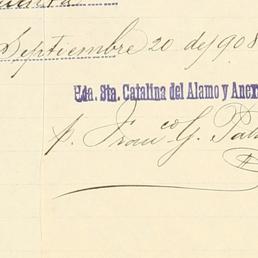 Septiembre 20 de 1908
Hda. Sta. Catalina del Alamo y Anex
p. Franco G.